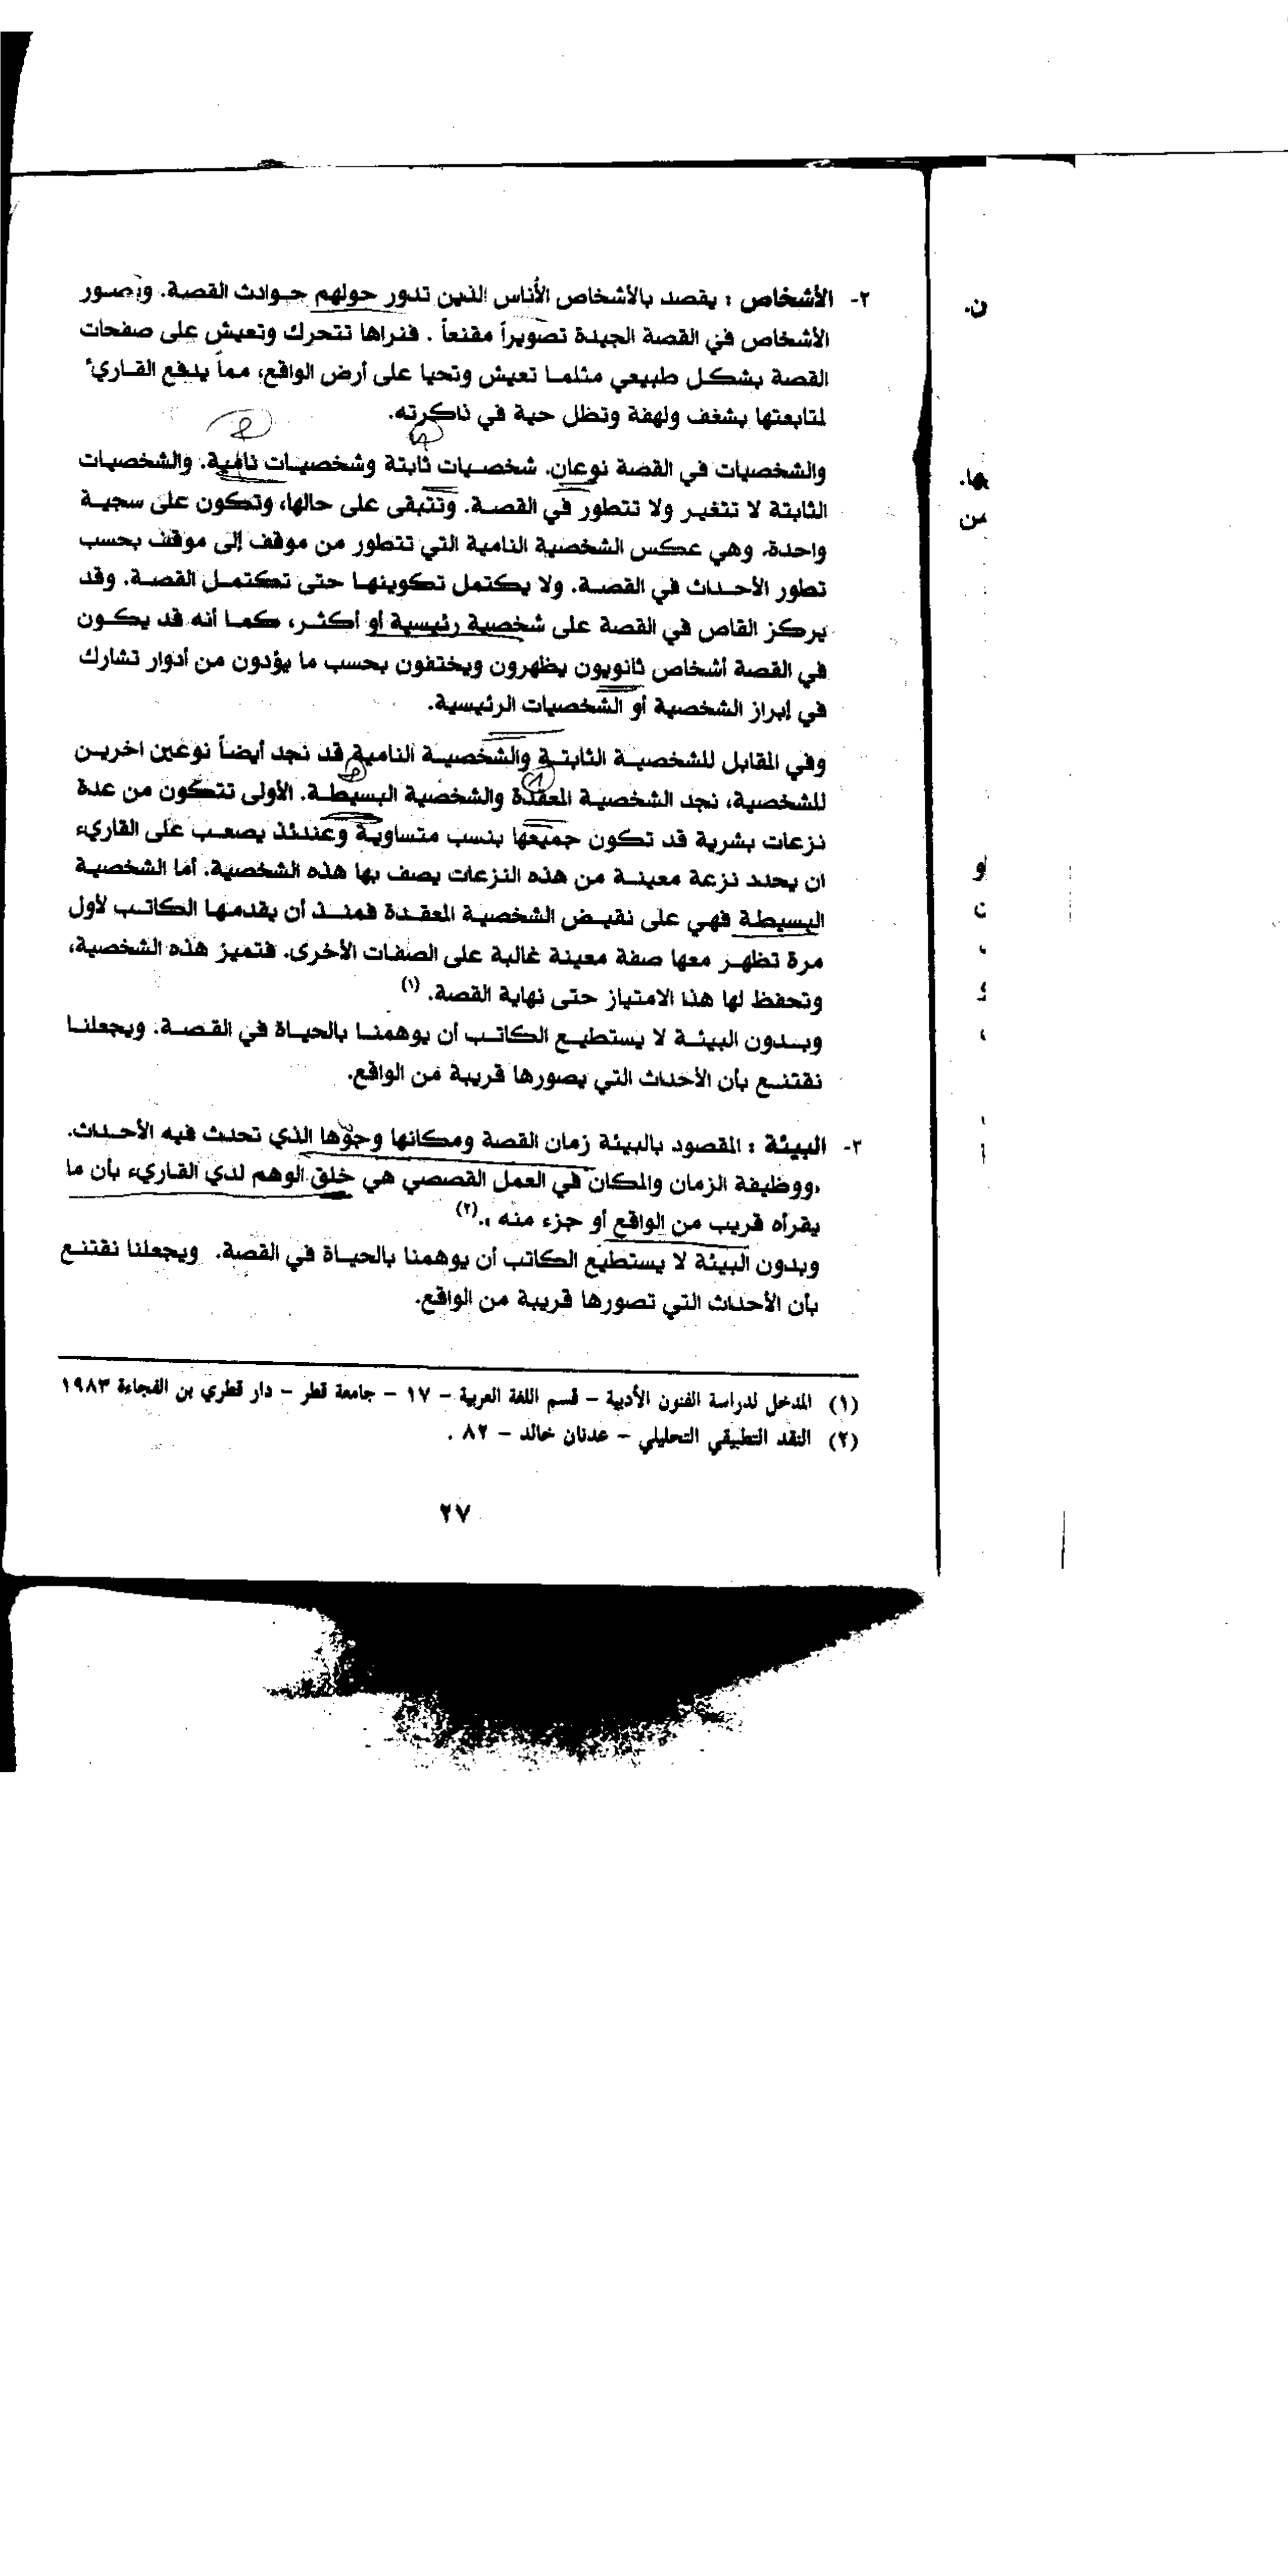 ٢- الأشخاص : يقصد بالأشخاص الأناس الذين تدور حولهم حوادث القصة. وتصور
الأشخاص في القصة الجيدة تصويراً مقنعاً . فنراها تتحرك وتعيش على صفحات
القصة بشكل طبيعي مثلما تعيش وتحيا على أرض الواقع، مماً يدفع القاريء
لمتابعتها بشغف ولهفة وتظل حية في ذاكرته.
والشخصيات في القصة نوعان. شخصيات ثابتة وشخصيات نامية. والشخصيات
الثابتة لا تتغير ولا تتطور في القصة. وتتبقى على حالها، وتكون على سجية
واحدة. وهي عكس الشخصية النامية التي تتطور من موقف إلى موقف بحسب
تطور الأحداث في القصة. ولا يكتمل تكوينها حتى تكتمل القصة. وقد
يركز القاص في القصة على شخصية رئيسية أو أكثر، كما أنه قد يكون
في القصة أشخاص ثانويون يظهرون ويختفون بحسب ما يؤدون من أدوار تشارك
في إبراز الشخصية أو الشخصيات الرئيسية.
وفي المقابل للشخصية الثابتة والشخصية النامية قد نجد أيضاً نوعين اخرين
للشخصية، نجد الشخصية المعقدة والشخصية البسيطة. الأولى تتكون من عدة
نزعات بشرية قد تكون جميعها بنسب متساوية وعندئذ يصعب على القاريء
ان يحدد نزعة معينة من هذه النزعات يصف بها هذه الشخصية. أما الشخصية
البسيطة فهي على نقيض الشخصية المعقدة فمنذ أن يقدمها الكاتب لأول
مرة تظهر معها صفة معينة غالبة على الصفات الأخرى. فتميز هذه الشخصية،
وتحفظ لها هذا الامتياز حتى نهاية القصة. (١)
وبدون البيئة لا يستطيع الكاتب أن يوهمنا بالحياة في القصة. ويجعلنا
نقتنع بأن الأحداث التي يصورها قريبة من الواقع.
٣- البيئة : المقصود بالبيئة زمان القصة ومكانها وجوها الذي تحدث فيه الأحداث.
«ووظيفة الزمان والمكان في العمل القصصي هي خلق الوهم لدي القاريء بأن ما
يقرأه قريب من الواقع أو جزء منه». (٢)
وبدون البيئة لا يستطيع الكاتب أن يوهمنا بالحياة في القصة. ويجعلنا نقتنع
بأن الأحداث التي تصورها قريبة من الواقع.
(١) المدخل لدراسة الفنون الأدبية – قسم اللغة العربية – ١٧ – جامعة قطر – دار قطري بن الفجاءة ١٩٨٣
(٢) النقد التطبيقي التحليلي – عدنان خالد – ٨٢ .
٢٧